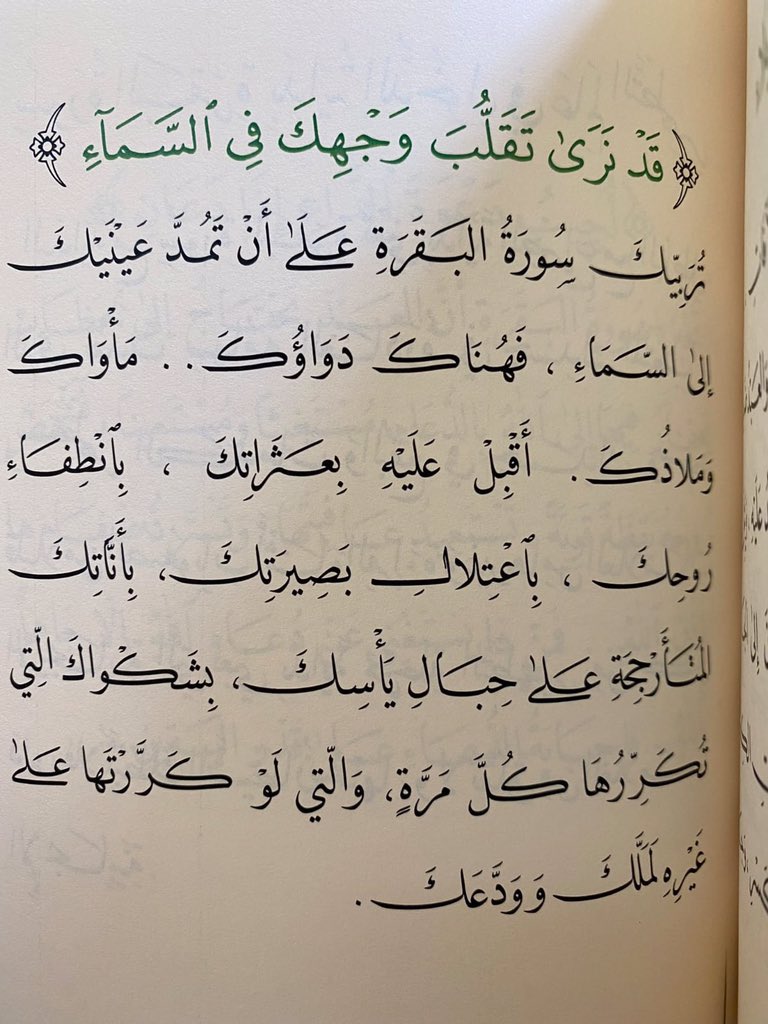 ﴿قَدْ نَرَىٰ تَقَلُّبَ وَجْهِكَ فِي ٱلسَّمَآءِ﴾
تُرَبِّيكَ سُورَةُ البَقَرَةِ عَلَىٰ أَنْ تَمُدَّ عَيْنَيْكَ
إِلىٰ السَّمَاءِ ، فَهُنَاكَ دَوَاؤُكَ .. مَأْوَاكَ
وَمَلاذُكَ . أَقْبِلْ عَلَيْهِ بِعَثَرَاتِكَ ، بِٱنْطِفَاءِ
رُوحِكَ ، بِٱعْتِلالِ بَصِيرَتِكَ، بِأَنَّاتِكَ
المُتَأَرْجِحَةِ عَلىٰ حِبَالِ يَأْسِكَ، بِشَكْوَاكَ الّتِي
تُكَرِّرُهَا كُلَّ مَرَّةٍ، وَالّتي لَوْ كَرَّرْتَها عَلىٰ
غَيْرِهِ لَمَلَّكَ وَوَدَّعَكَ .